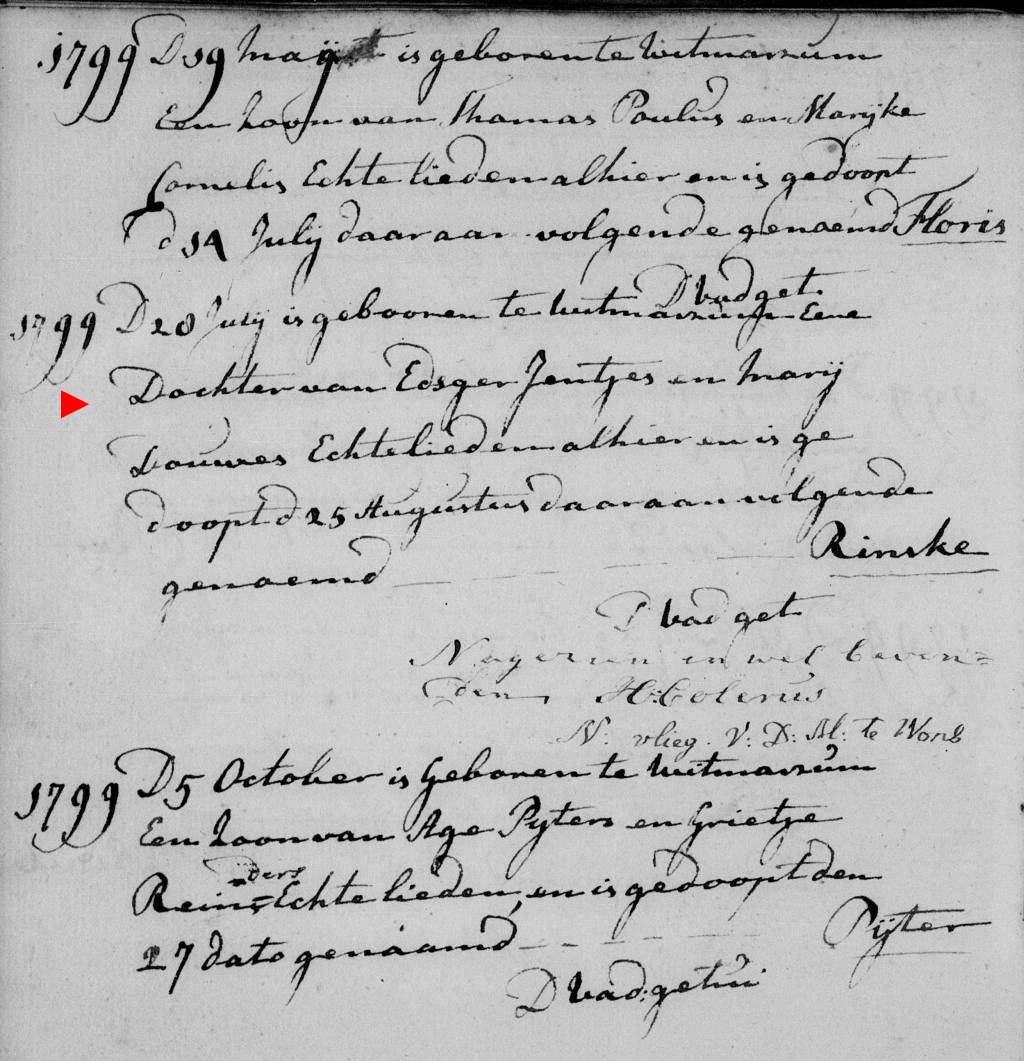 1799 D 19 Maij is geboren te Witmarsum
Een Zoon van Thomas Paulus en Marijke
Cornelis Echte lieden alhier en is gedoopt
d 14 July daaraan volgende genaemd Floris
D vad get.
1799 D 28 July is gebooren te Witmarsum Eene
Dochter van Edsger Jentjes en Marij
Douwes Echtelieden alhier en is ge
doopt d 25 Augustus daaraan volgende
genaemd Rinske
D vad get
Nagezien en wel bevon=
den H: Colerus
N: vlieg. V: D: M: te Wons
1799 D 5 October is Geboren te Witmarsum
Een Zoon van Age Pyters en Grietje
Reinders Echte lieden, en is gedoopt den
27 dato genaamd Pijter
D vad: getui